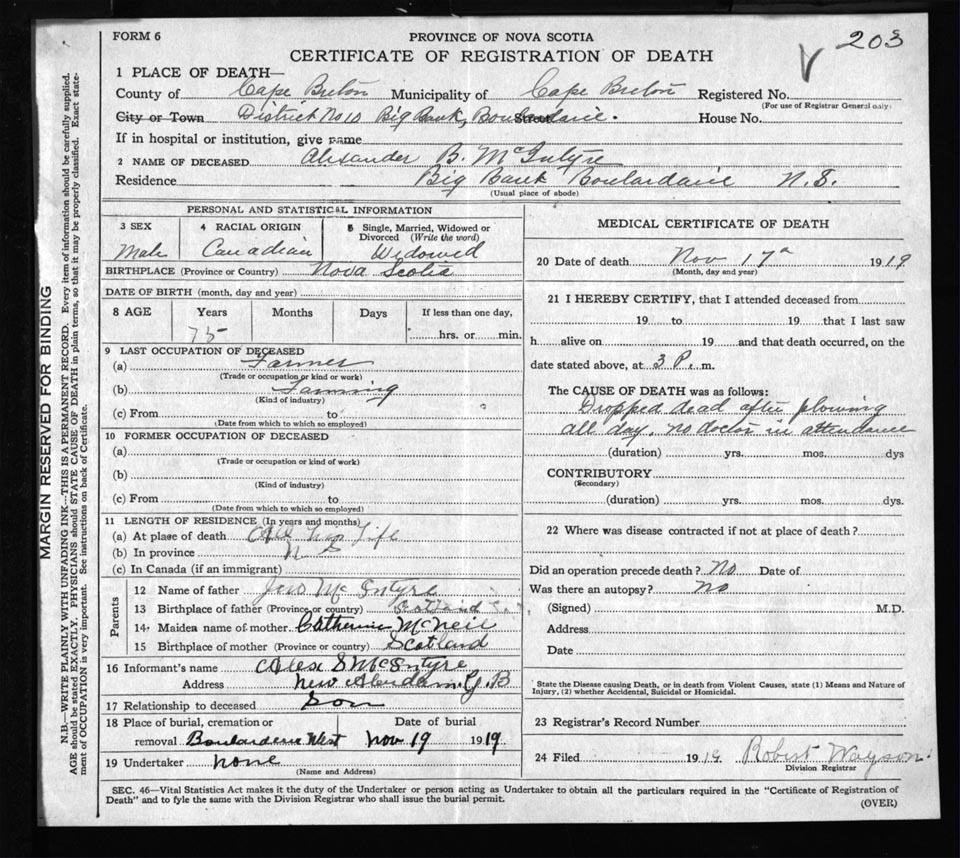 FORM 6
PROVINCE OF NOVA SCOTIA
203
CERTIFICATE OF REGISTRATION OF DEATH
1 PLACE OF DEATH—
County of Cape Breton Municipality of Cape Breton Registered No.
(For use of Registrar General only)
City or Town District No 10 Big Bank, Boulardarie. Street House No.
If in hospital or institution, give name
2 NAME OF DECEASED Alexander B. McIntyre
Residence Big Bank Boulardarie N.S.
(Usual place of abode)
PERSONAL AND STATISTICAL INFORMATION
3 SEX
4 RACIAL ORIGIN
5 Single, Married, Widowed or Divorced (Write the word)
Male Canadian Widowed
BIRTHPLACE (Province or Country) Nova Scotia
DATE OF BIRTH (month, day and year)
8 AGE Years Months Days If less than one day,
75 hrs. or min.
9 LAST OCCUPATION OF DECEASED
(a) Farmer
(Trade or occupation or kind or work)
(b) Farming
(Kind of industry)
(c) From to
(Date from which to which so employed)
10 FORMER OCCUPATION OF DECEASED
(a)
(Trade or occupation or kind of work)
(b)
(Kind of industry)
(c) From to
(Date from which to which so employed)
11 LENGTH OF RESIDENCE (In years and months)
(a) At place of death All his Life
(b) In province N S
(c) In Canada (if an immigrant)
Parents
12 Name of father Jno McIntyre
13 Birthplace of father (Province or country) Scotland
14 Maiden name of mother Catherine McNeil
15 Birthplace of mother (Province or country) Scotland
16 Informant's name Alex S McIntyre
Address New Aberdeen, C B
17 Relationship to deceased Son
18 Place of burial, cremation or Date of burial
removal Boulardarie West Nov 19 1919
19 Undertaker none
(Name and Address)
MEDICAL CERTIFICATE OF DEATH
20 Date of death Nov 17 1919
(Month, day and year)
21 I HEREBY CERTIFY, that I attended deceased from
19 to 19 that I last saw
h alive on 19 and that death occurred, on the
date stated above, at 3 P. m.
The CAUSE OF DEATH was as follows:
Dropped dead after plowing
all day. no doctor in attendance
(duration) yrs. mos. dys
CONTRIBUTORY
(Secondary)
(duration) yrs. mos. dys.
22 Where was disease contracted if not at place of death?
Did an operation precede death? No Date of
Was there an autopsy? No
(Signed) M.D.
Address
Date
State the Disease causing Death, or in death from Violent Causes, state (1) Means and Nature of
Injury, (2) whether Accidental, Suicidal or Homicidal.
23 Registrar's Record Number
24 Filed 1919 Robert Wayson.
Division Registrar
SEC. 46—Vital Statistics Act makes it the duty of the Undertaker or person acting as Undertaker to obtain all the particulars required in the "Certificate of Registration of
Death" and to fyle the same with the Division Registrar who shall issue the burial permit.
(OVER)
MARGIN RESERVED FOR BINDING
N.B.—WRITE PLAINLY WITH UNFADING INK—THIS IS A PERMANENT RECORD. Every item of information should be carefully supplied.
AGE should be stated EXACTLY. PHYSICIANS should STATE CAUSE OF DEATH in plain terms, so that it may be properly classified. Exact state-
ment of OCCUPATION is very important. See instructions on back of Certificate.